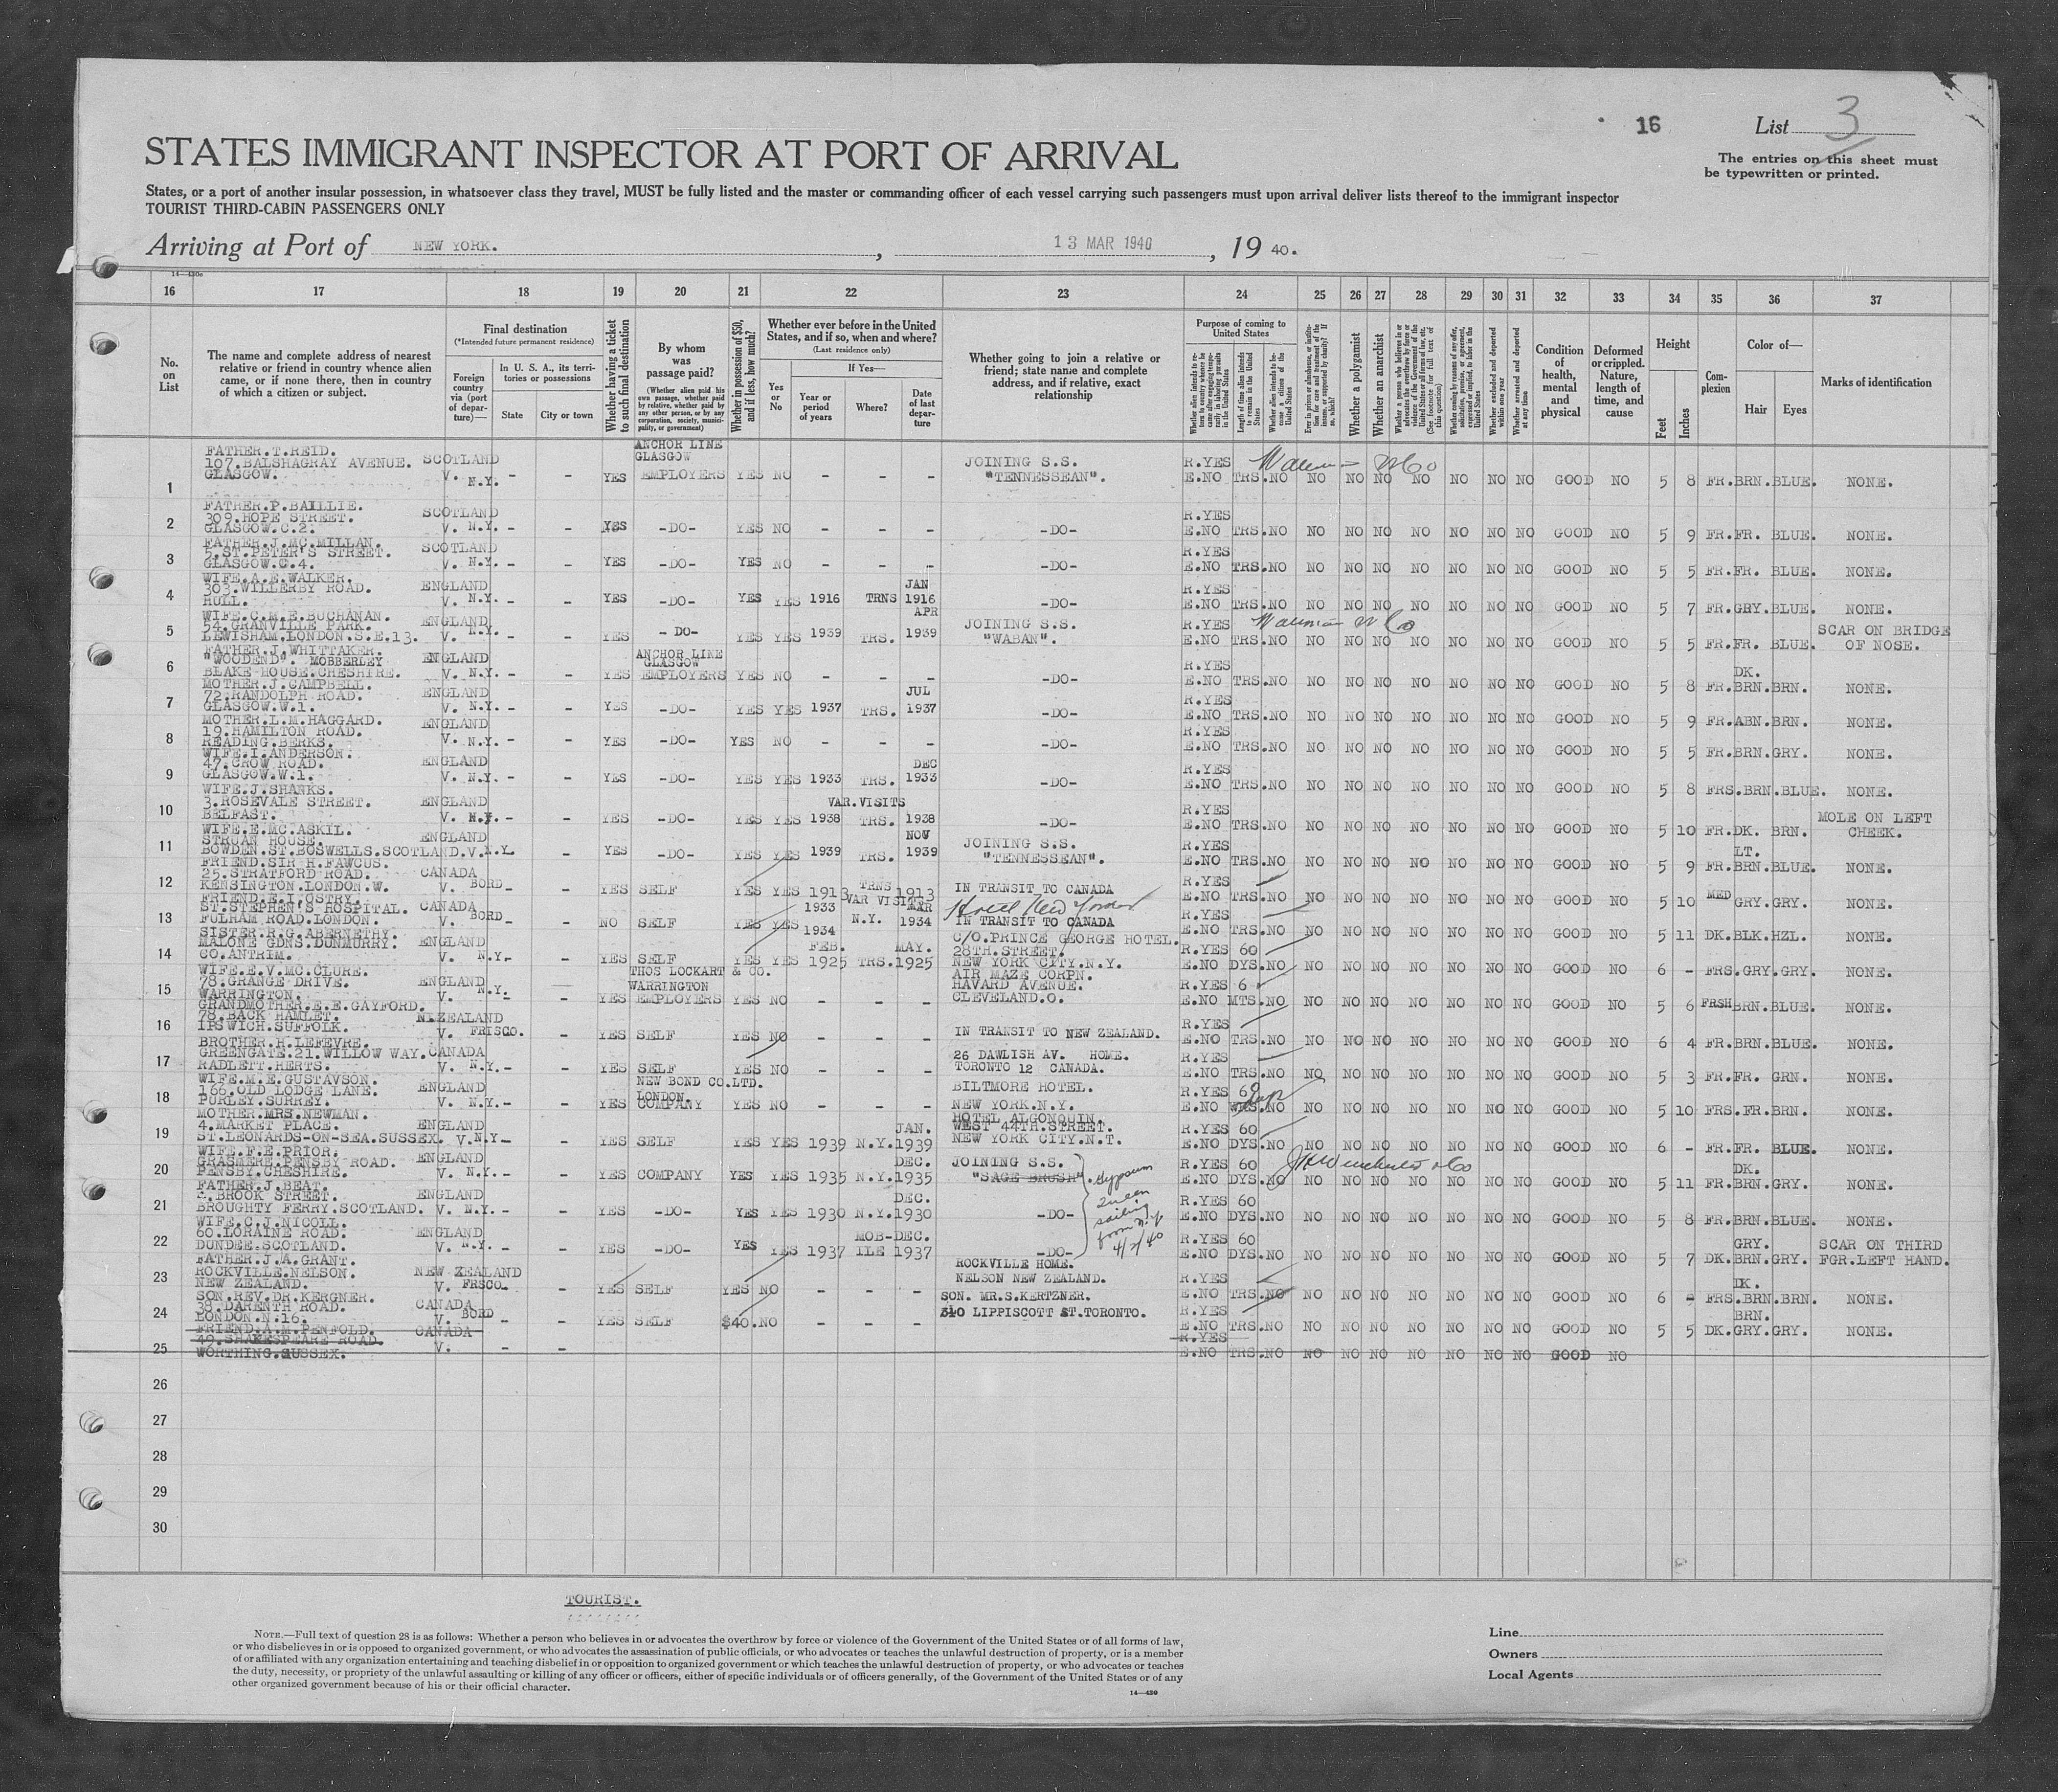 16
List 3
The entries on this sheet must
be typewritten or printed.
STATES IMMIGRANT INSPECTOR AT PORT OF ARRIVAL
States, or a port of another insular possession, in whatsoever class they travel, MUST be fully listed and the master or commanding officer of each vessel carrying such passengers must upon arrival deliver lists thereof to the immigrant inspector
TOURIST THIRD-CABIN PASSENGERS ONLY
Arriving at Port of NEW YORK. , 13 MAR 1940 , 19 40.
16 17 18 19 20 21 22 23 24 25 26 27 28 29 30 31 32 33 34 35 36 37
No. on List
The name and complete address of nearest relative or friend in country whence alien came, or if none there, then in country of which a citizen or subject.
Final destination
(*Intended future permanent residence)
Foreign country via (port of departure)—
In U. S. A., its territories or possessions
State
City or town
Whether having a ticket to such final destination
By whom was passage paid?
(Whether alien paid his own passage, whether paid by relative, whether paid by any other person, or by any corporation, society, municipality, or government)
Whether in possession of $50, and if less, how much?
Whether ever before in the United States, and if so, when and where?
(Last residence only)
Yes or No
If Yes—
Year or period of years
Where?
Date of last departure
Whether going to join a relative or friend; state name and complete address, and if relative, exact relationship
Purpose of coming to United States
Whether a polygamist
Whether an anarchist
Whether excluded and deported within one year
Whether arrested and deported at any time
Condition of health, mental and physical
Deformed or crippled. Nature, length of time, and cause
Height
Feet
Inches
Complexion
Color of—
Hair
Eyes
Marks of identification
1 FATHER.T.REID. 107.BALSHAGRAY AVENUE. GLASGOW. SCOTLAND V. N.Y. - - YES ANCHOR LINE GLASGOW EMPLOYERS YES NO - - - JOINING S.S. "TENNESSEAN". R.YES E.NO TRS.NO NO NO NO NO NO NO NO GOOD NO 5 8 FR.BRN.BLUE. NONE.
2 FATHER.P.BAILLIE. 309.HOPE STREET. GLASGOW.C.2. SCOTLAND V. N.Y. - - YES -DO- YES NO - - - -DO- R.YES E.NO TRS.NO NO NO NO NO NO NO NO GOOD NO 5 9 FR.FR. BLUE. NONE.
3 FATHER.J.MC.MILLAN. 5.ST.PETER'S STREET. GLASGOW.C.4. SCOTLAND V. N.Y. - - YES -DO- YES NO - - - -DO- R.YES E.NO TRS.NO NO NO NO NO NO NO NO GOOD NO 5 5 FR.FR. BLUE. NONE.
4 WIFE.A.E.WALKER. 303.WILLERBY ROAD. HULL. ENGLAND V. N.Y. - - YES -DO- YES YES 1916 TRNS JAN 1916 -DO- R.YES E.NO TRS.NO NO NO NO NO NO NO NO GOOD NO 5 7 FR.GRY.BLUE. NONE.
5 WIFE.C.M.E.BUCHANAN. 54.GRANVILLE PARK. LEWISHAM.LONDON.S.E.13. ENGLAND V. N.Y. - YES -DO- YES YES 1939 TRS. APR 1939 JOINING S.S. "WABAN". R.YES E.NO TRS.NO NO NO NO NO NO NO NO GOOD NO 5 5 FR.FR. BLUE. SCAR ON BRIDGE OF NOSE.
6 FATHER.J.WHITTAKER. "WOODEND". MOBBERLEY BLAKE HOUSE.CHESHIRE. ENGLAND V. N.Y. - - YES ANCHOR LINE GLASGOW EMPLOYERS YES NO - - - -DO- R.YES E.NO TRS.NO NO NO NO NO NO NO NO GOOD NO 5 8 FR.DK.BRN.BRN. NONE.
7 MOTHER.J.CAMPBELL. 72.RANDOLPH ROAD. GLASGOW.W.1. ENGLAND V. N.Y. - - YES -DO- YES YES 1937 TRS. JUL 1937 -DO- R.YES E.NO TRS.NO NO NO NO NO NO NO NO GOOD NO 5 9 FR.ABN.BRN. NONE.
8 MOTHER.L.M.HAGGARD. 19.HAMILTON ROAD. READING.BERKS. ENGLAND V. N.Y. - - YES -DO- YES NO - - - -DO- R.YES E.NO TRS.NO NO NO NO NO NO NO NO GOOD NO 5 5 FR.BRN.GRY. NONE.
9 WIFE.I.ANDERSON. 47.CROW ROAD. GLASGOW.W.1. ENGLAND V. N.Y. - - YES -DO- YES YES 1933 TRS. DEC 1933 -DO- R.YES E.NO TRS.NO NO NO NO NO NO NO NO GOOD NO 5 8 FRS.BRN.BLUE. NONE.
10 WIFE.J.SHANKS. 3.ROSEVALE STREET. BELFAST. ENGLAND V. N.Y. - - YES -DO- YES YES VAR.VISITS 1938 TRS. 1938 -DO- R.YES E.NO TRS.NO NO NO NO NO NO NO NO GOOD NO 5 10 FR.DK. BRN. MOLE ON LEFT CHEEK.
11 WIFE.E.MC.ASKIL. STRUAN HOUSE. BOWDEN.ST.BOSWELLS.SCOTLAND. ENGLAND V.N.Y. - YES -DO- YES YES 1939 TRS. NOV 1939 JOINING S.S. "TENNESSEAN". R.YES E.NO TRS.NO NO NO NO NO NO NO NO GOOD NO 5 9 FR.LT.BRN.BLUE. NONE.
12 FRIEND.SIR H.FAWCUS. 25.STRATFORD ROAD. KENSINGTON.LONDON.W. CANADA V. BORD - - YES SELF YES YES 1913 TRNS 1913 IN TRANSIT TO CANADA R.YES E.NO TRS.NO NO NO NO NO NO NO NO GOOD NO 5 10 MED GRY.GRY. NONE.
13 FRIEND.E.I.OSTRY. ST.STEPHEN'S HOSPITAL. FULHAM ROAD.LONDON. CANADA V. BORD - - NO SELF YES YES 1933 1934 VAR VISITS N.Y. MAR 1934 Hotel New Yorker IN TRANSIT TO CANADA R.YES E.NO TRS.NO NO NO NO NO NO NO NO GOOD NO 5 11 DK.BLK.HZL. NONE.
14 SISTER.R.G.ABERNETHY. MALONE GDNS.DUNMURRY. CO.ANTRIM. ENGLAND V. N.Y. - - YES SELF YES YES FEB. 1925 TRS. MAY. 1925 C/O.PRINCE GEORGE HOTEL. 28TH.STREET. NEW YORK CITY.N.Y. R.YES 60 E.NO DYS.NO NO NO NO NO NO NO NO GOOD NO 6 - FRS.GRY.GRY. NONE.
15 WIFE.E.V.MC.CLURE. 78.GRANGE DRIVE. WARRINGTON. ENGLAND V. N.Y. - - YES THOS LOCKART & CO. WARRINGTON EMPLOYERS YES NO - - - AIR MAZE CORPN. HAVARD AVENUE. CLEVELAND.O. R.YES 6 E.NO MTS.NO NO NO NO NO NO NO NO GOOD NO 5 6 FRSH BRN.BLUE. NONE.
16 GRANDMOTHER.E.E.GAYFORD. 78.BACK HAMLET. IPSWICH.SUFFOLK. N.ZEALAND V. FRISCO. - YES SELF YES NO - - - IN TRANSIT TO NEW ZEALAND. R.YES E.NO TRS.NO NO NO NO NO NO NO NO GOOD NO 6 4 FR.BRN.BLUE. NONE.
17 BROTHER.H.LEFEVRE. GREENGATE.21.WILLOW WAY. RADLETT.HERTS. CANADA V. N.Y. - - YES SELF YES NO - - - 26 DAWLISH AV. HOME. TORONTO 12 CANADA. R.YES E.NO TRS.NO NO NO NO NO NO NO NO GOOD NO 5 3 FR.FR. GRN. NONE.
18 WIFE.M.E.GUSTAVSON. 166.OLD LODGE LANE. PURLEY.SURREY. ENGLAND V. N.Y. - - YES NEW BOND CO.LTD. LONDON. COMPANY YES NO - - - BILTMORE HOTEL. NEW YORK.N.Y. R.YES 60 days E.NO NO NO NO NO NO NO NO NO GOOD NO 5 10 FRS.FR.BRN. NONE.
19 MOTHER.MRS.NEWMAN. 4.MARKET PLACE. ST.LEONARDS-ON-SEA.SUSSEX. ENGLAND V.N.Y. - - YES SELF YES YES 1939 N.Y. JAN. 1939 HOTEL ALGONQUIN. WEST 44TH.STREET. NEW YORK CITY.N.T. R.YES 60 E.NO DYS.NO NO NO NO NO NO NO NO GOOD NO 6 - FR.FR. BLUE. NONE.
20 WIFE.F.E.PRIOR. GRASMERE.PENSBY ROAD. PENSBY.CHESHIRE. ENGLAND V. N.Y. - - YES COMPANY YES YES 1935 N.Y. DEC. 1935 JOINING S.S. "SAGE BRUSH". Gypsum Queen sailing from N.Y. 4/2/40 R.YES 60 E.NO DYS.NO NO NO NO NO NO NO NO GOOD NO 5 11 FR.DK.BRN.GRY. NONE.
21 FATHER.J.BEAT. BROOK STREET. BROUGHTY FERRY.SCOTLAND. ENGLAND V. N.Y. - - YES -DO- YES YES 1930 N.Y. DEC. 1930 -DO- R.YES 60 E.NO DYS.NO NO NO NO NO NO NO NO GOOD NO 5 8 FR.BRN.BLUE. NONE.
22 WIFE.C.J.NICOLL. 60.LORAINE ROAD. DUNDEE.SCOTLAND. ENGLAND V. N.Y. - - YES -DO- YES YES 1937 MOB-ILE DEC. 1937 -DO- R.YES 60 E.NO DYS.NO NO NO NO NO NO NO NO GOOD NO 5 7 DK.GRY.BRN.GRY. SCAR ON THIRD FGR.LEFT HAND.
23 FATHER.J.A.GRANT. ROCKVILLE.NELSON. NEW ZEALAND. NEW ZEALAND V. FRSCO. - YES SELF YES NO - - - ROCKVILLE HOME. NELSON NEW ZEALAND. R.YES E.NO TRS.NO NO NO NO NO NO NO NO GOOD NO 6 - FRS.DK.BRN.BRN. NONE.
24 SON.REV.DR.KERGNER. 38.DARENTH ROAD. LONDON.N.16. CANADA V. BORD - - YES SELF $40. NO - - - SON. MR.S.KERTZNER. 310 LIPPISCOTT ST.TORONTO. R.YES E.NO TRS.NO NO NO NO NO NO NO NO GOOD NO 5 5 DK.BRN.GRY.GRY. NONE.
25 FRIEND.A.M.PENFOLD. 49.SHAKESPEARE ROAD. WORTHING.SUSSEX. CANADA V. - - R.YES E.NO TRS.NO NO NO NO NO NO NO NO GOOD NO
26
27
28
29
30
TOURIST.
NOTE.—Full text of question 28 is as follows: Whether a person who believes in or advocates the overthrow by force or violence of the Government of the United States or of all forms of law,
or who disbelieves in or is opposed to organized government, or who advocates the assassination of public officials, or who advocates or teaches the unlawful destruction of property, or is a member
of or affiliated with any organization entertaining and teaching disbelief in or opposition to organized government or which teaches the unlawful destruction of property, or who advocates or teaches
the duty, necessity, or propriety of the unlawful assaulting or killing of any officer or officers, either of specific individuals or of officers generally, of the Government of the United States or of any
other organized government because of his or their official character.
14—430
Line
Owners
Local Agents